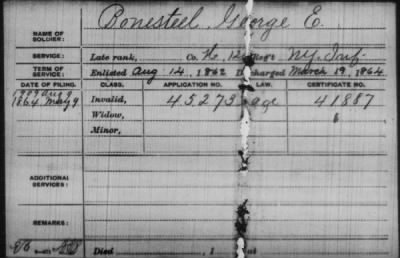 NAME OF SOLDIER: Bonesteel, George E.
SERVICE: Late rank, Co. H, 12 Reg't N.Y. Inf.
TERM OF SERVICE: Enlisted Aug. 14, 1862 Discharged March 19, 1864
DATE OF FILING. CLASS. APPLICATION NO. LAW. CERTIFICATE NO.
1864 May 9 Invalid, 45273 41887
Widow,
Minor,
ADDITIONAL SERVICES:
REMARKS:
Died , 1 , at